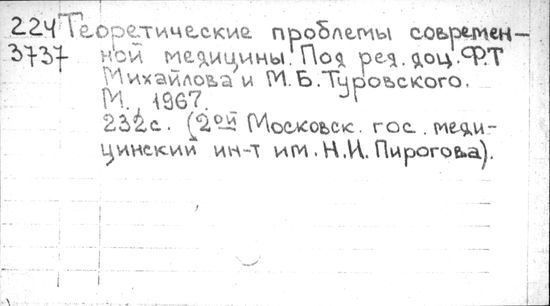 224 Теоретические проблемы современ-
3737 ной медицины. Под ред. доц. Ф.Т
Михайлова и М.Б. Туровского.
М., 1967.
232с. (2ой Московск. гос. меди-
цинский ин-т им. Н.И. Пирогова).